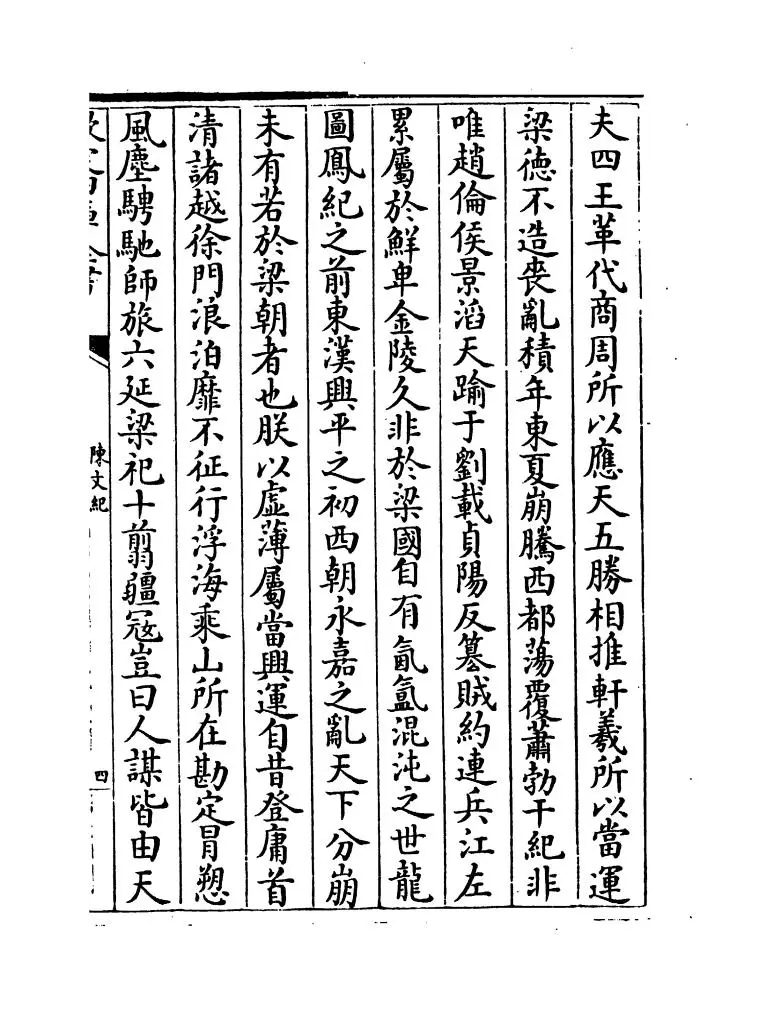 夫四王革代商周所以應天五勝相推軒羲所以當運
梁徳不造喪亂積年東夏崩騰西都蕩覆蕭勃干紀非
唯趙倫侯景滔天踰于劉載貞陽反篡賊約連兵江左
累屬於鮮卑金陵久非於梁國自有氤氲混沌之世龍
圖鳳紀之前東漢興平之初西朝永嘉之亂天下分崩
未有若於梁朝者也朕以虚薄屬當興運自昔登庸首
清諸越徐門浪泊靡不征行浮海乘山所在勘定冒愬
風塵騁馳師旅六延梁祀十翦彊冦豈曰人謀皆由天
陳文紀
四